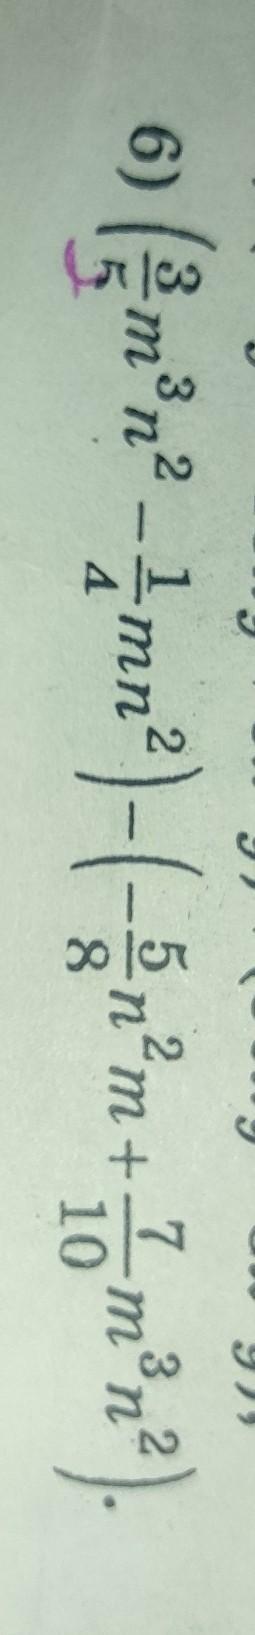 6) (3/5 m³n² − 1/4 mn²) − (− 5/8 n²m + 7/10 m³n²).